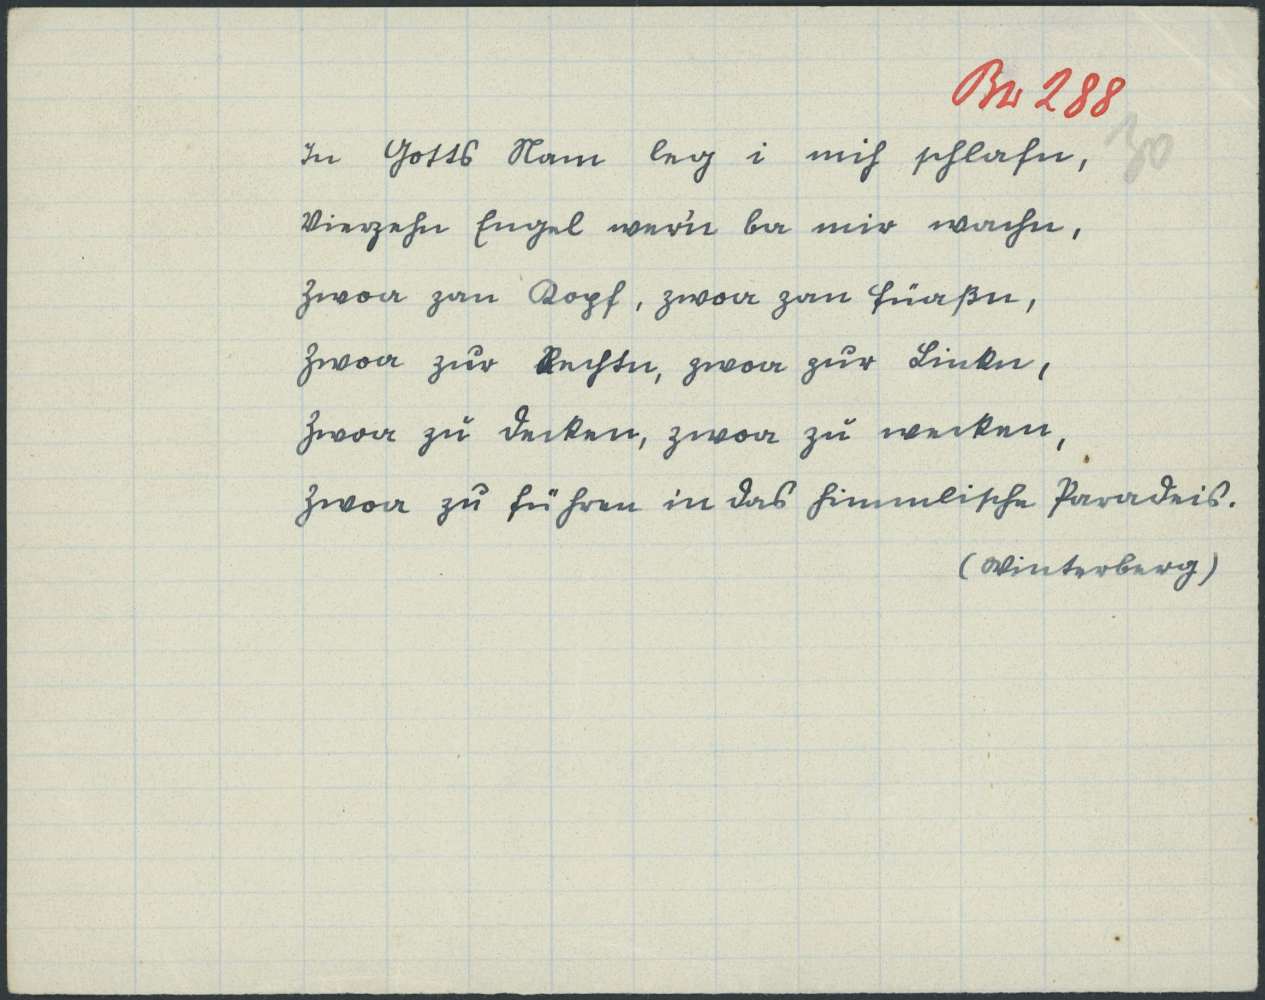 Bw 288
30
In Gotts Nam leg i mih schlafn,
Vierzehn Engel wer'n ba mir wachn,
Zwoa zan Kopf, zwoa zan Füaßn,
Zwoa zur Rechtn, zwoa zur Linkn,
Zwoa zu decken, zwoa zu wecken,
Zwoa zu führen in das himmlische Paradeis.
(Winterberg)